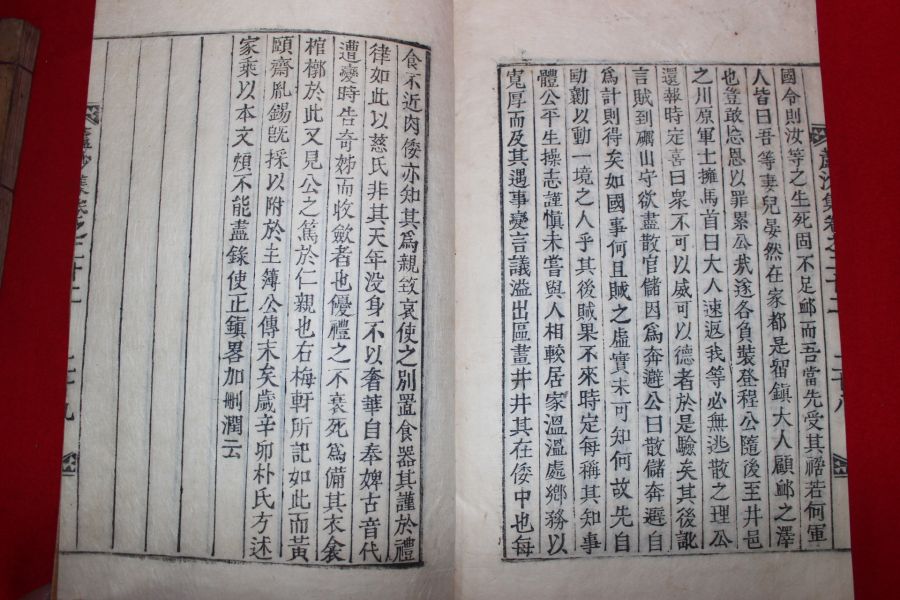 國令則汝等之生死固不足邺而吾當先受其禍若何軍
人皆曰吾等妻兒晏然在家都是留鎭大人顧邺之澤
也豈敢忘恩以罪累公哉遂各負裝登程公隨後至井邑
之川原軍士擁馬首曰大人速返我等必無逃散之理公
還報時定喜曰衆不可以威可以德者於是驗矣其後訛
言賊到礪山守欲盡散官儲因爲奔避公曰散儲奔避自
爲計則得矣如國事何且賊之虛實未可知何故先自
動勷以動一境之人乎其後賊果不來時定每稱其知事
體公平生操志謹愼未嘗與人相較居家溫溫處鄕務以
寬厚而及其遇事變言議溢出區畫井井其在倭中也每
二十八
食不近肉倭亦知其爲親致哀使之別置食器其謹於禮
律如此以慈氏非其天年没身不以奢華自奉婢古音代
遭變時告奇姊而收斂者也優禮之不衰死爲備其衣衾
棺槨於此又見公之篤於仁親也右梅軒所記如此而黃
頤齋胤錫旣採以附於主簿公傳末矣歲辛卯朴氏方述
家乘以本文煩不能盡錄使正鎭畧加刪潤云
二十九